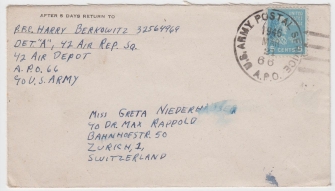 AFTER 5 DAYS RETURN TO
HARRY BERKOWITZ 32564969
DET "A", 42 AIR REP. SQ
42 AIR DEPOT
A.P.O. 66
℅ U.S. ARMY
U.S. ARMY POSTAL SERVICE
1946
A.P.O.
5 CENTS 5
MISS GRETA
℅ DR MAX RAPPOLD
BAHNHOFSTR 50
ZURICH, 1,
SWITZERLAND